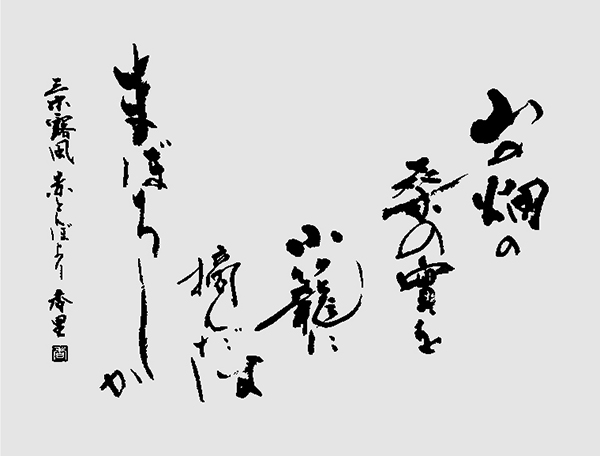 山の畑の
桑の實を
小籠に
摘んだは
まぼろしか
三木露風 赤とんぼより 香里